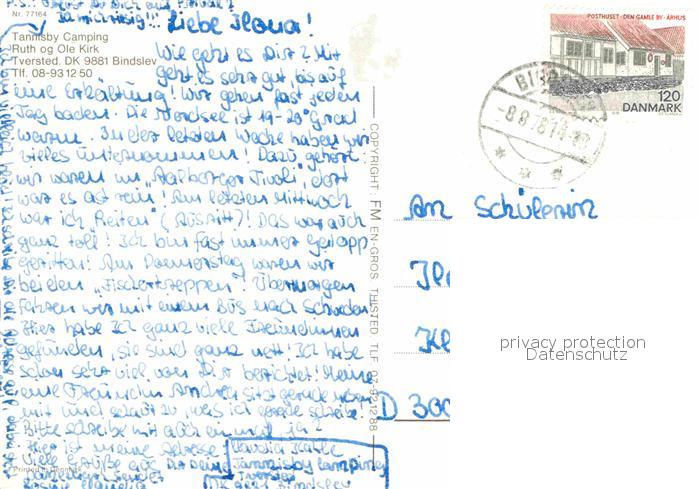 Nr. 77164
Tannisby Camping
Ruth og Ole Kirk
Tversted. DK 9881 Bindslev
Tlf. 08-93 12 50
Liebe Ilona!
Wie geht es Dir? Mir
geht es sehr gut bis auf
eine Erkältung! Wir gehen fast jeden
Tag baden. Die Nordsee ist 19-20 Grad
warm. In der letzten Woche haben wir
vieles unternommen! Dazu gehört:
wir waren im "Aalborger Tivoli", dort
war es ast rein! Am letzten Mittwoch
war ich "Reiten" (Ausritt)! Das war auch
ganz toll! Ich bin fast immer Galopp
geritten! Am Donnerstag waren wir
bei den "Fischertreppen"! Übermorgen
Fahren wir mit einem Bus nach Schweden.
Hier habe Ich ganz viele Freundinnen
gefunden, sie sind ganz nett! Ich habe
schon sehr viel von Dir berichtet! Meine
eine Freundin Andrea sitzt gerade neben
mir und schaut zu, was ich gerade schreibe!
Bitte schreibe mir auch ein mal, ja?
Hier ist meine Adresse:
Viele Grüße aus Deine
Claudia
Tannisby Camping
Tversted
DK 9881 Bindslev
Printed in Denmark
COPYRIGHT: FM EN-GROS THISTED TLF 07-92 12 88
POSTHUSET · DEN GAMLE BY · ÅRHUS
120
DANMARK
-8.8.78
An Schülerin
D 300
privacy protection
Datenschutz